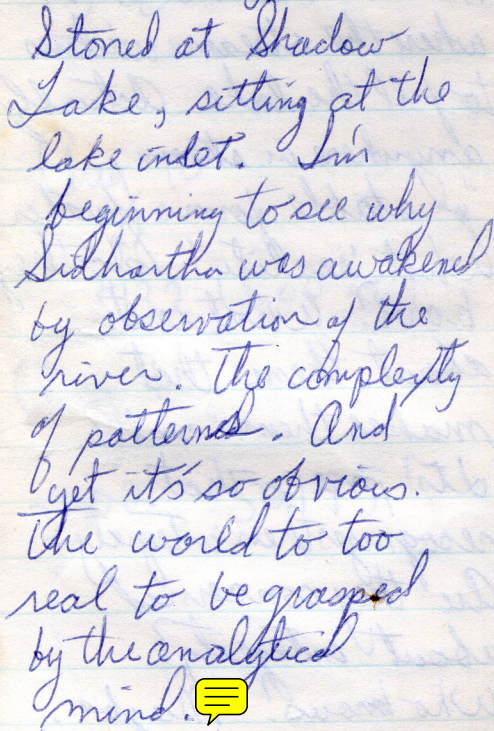 Stoned at Shadow
Lake, sitting at the
lake inlet. I'm
beginning to see why
Sidhartha was awakened
by observation of the
river. The complexity
of patterns. And
yet it's so obvious.
The world to too
real to be grasped
by the analytical
mind.